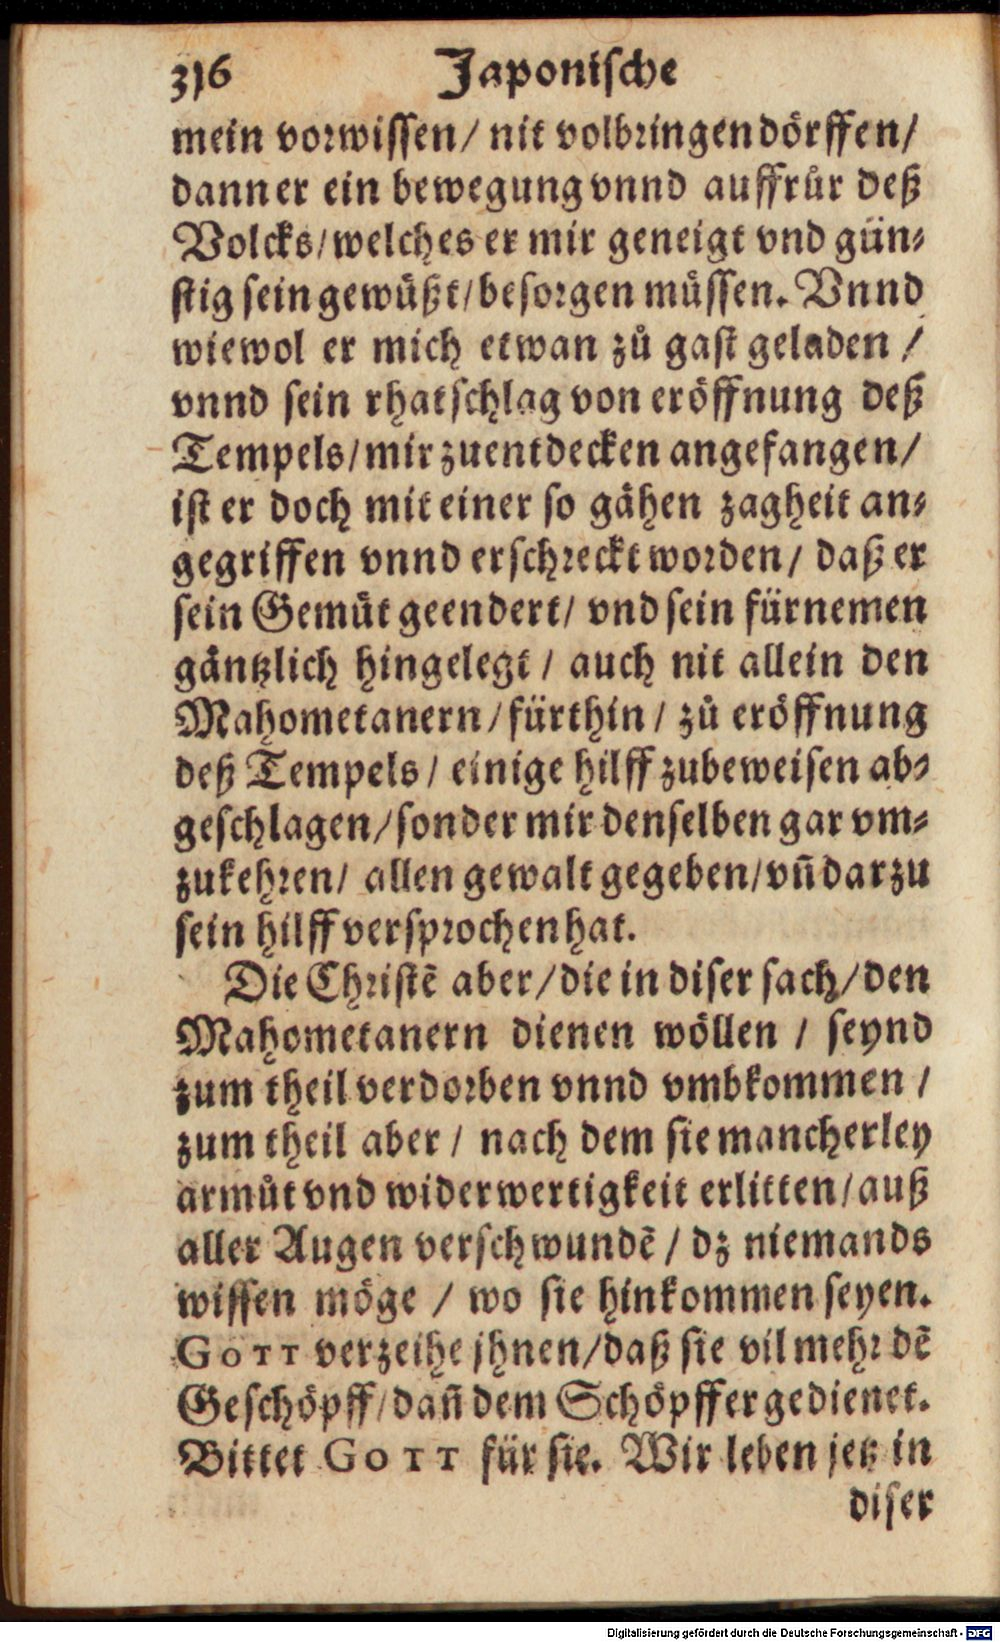 316 Japonische
mein vorwissen/ nit volbringen dörffen/
dann er ein bewegung vnnd auffrůr deß
Volcks/welches er mir geneigt vnd gün-
stig sein gewüßt/besorgen müssen. Vnnd
wiewol er mich etwan zů gast geladen /
vnnd sein rhatschlag von eröffnung deß
Tempels/mir zuentdecken angefangen/
ist er doch mit einer so gähen zagheit an-
gegriffen vnnd erschreckt worden/ daß er
sein Gemüt geendert/ vnd sein fürnemen
gäntzlich hingelegt / auch nit allein den
Mahometanern/fürthin/ zů eröffnung
deß Tempels/ einige hilff zubeweisen ab-
geschlagen/sonder mir denselben gar vm-
zukehren/ allen gewalt gegeben/vñ darzu
sein hilff versprochen hat.
Die Christẽ aber/die in diser sach/den
Mahometanern dienen wöllen / seynd
zum theil verdorben vnnd vmbkommen /
zum theil aber / nach dem sie mancherley
armůt vnd widerwertigkeit erlitten/auß
aller Augen verschwundẽ / dz niemands
wissen möge / wo sie hinkommen seyen.
GOTT verzeihe jhnen/daß sie vil mehr dẽ
Geschöpff/dañ dem Schöpffer gedienet.
Bittet GOTT für sie. Wir leben jetz in
diser
Digitalisierung gefördert durch die Deutsche Forschungsgemeinschaft - DFG